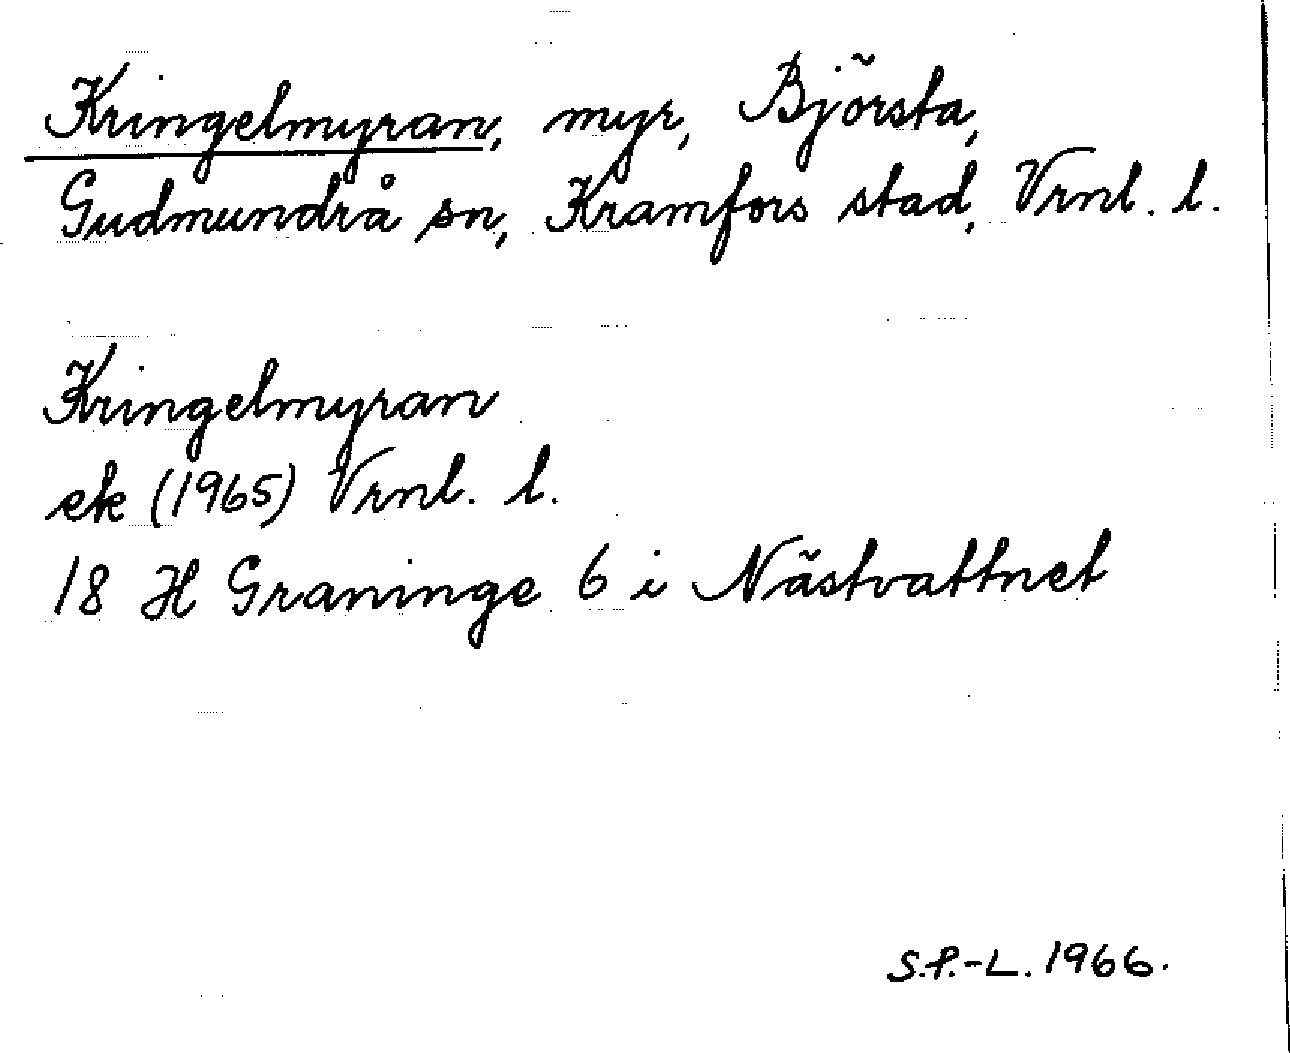 Kringelmyran, myr, Björsta,
Gudmundrå sn, Kramfors stad, Vrnl. l.
Kringelmyran
ek (1965) Vrnl. l.
18 H Graninge 6 i Nästvattnet
S.P.-L. 1966.